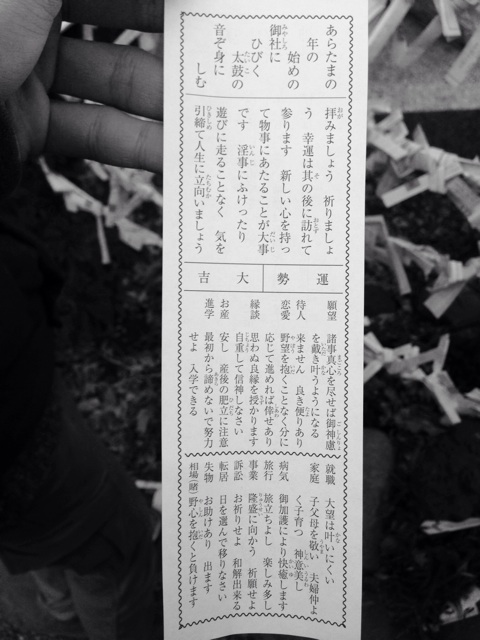 あらたまの
年の
始めの
御社に
ひびく
太鼓の
音ぞ身に
しむ
拝みましょう 祈りましょ
う 幸運は其の後に訪れて
参ります 新しい心を持っ
て物事にあたることが大事
です 淫事にふけったり
遊びに走ることなく 気を
引締て人生に立向いましょう
運勢
大吉
願望 諸事真心を尽せば御神慮
を戴き叶うようになる
待人 来ません 良き便りあり
恋愛 野望を抱くことなく分に
応じて進めれば倖せあり
縁談 思わぬ良縁を授かります
自重して信神しなさい
お産 安し 産後の肥立に注意
進学 最初から諦めないで努力
せよ 入学できる
就職 大望は叶いにくい
家庭 子父母を敬い 夫婦仲よ
く子育つ 神意美し
病気 御加護により快癒します
旅行 旅立ちよし 楽しみ多し
事業 隆盛に向かう 祈願せよ
訴訟 お祈りせよ 和解出来る
転居 日を選んで移りなさい
失物 お助けあり 出ます
相場(賭) 野心を抱くと負けます